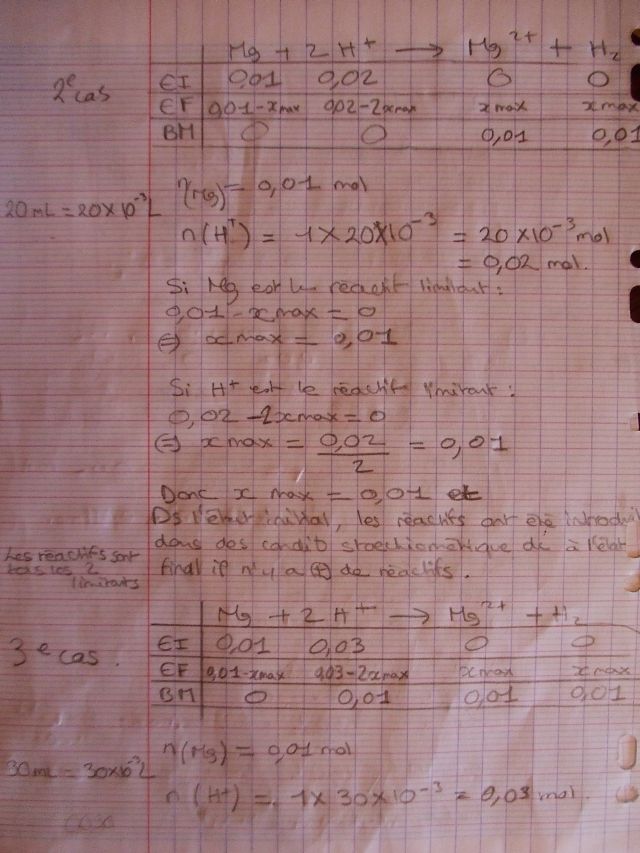 Mg + 2 H⁺ → Mg²⁺ + H₂
2e cas
EI 0,01 0,02 0 0
EF 0,01-xmax 0,02-2xmax xmax xmax
BM 0 0 0,01 0,01
n(Mg) = 0,01 mol
20 mL = 20×10⁻³ L
n(H⁺) = 1×20×10⁻³ = 20×10⁻³ mol
= 0,02 mol.
Si Mg est le réactif limitant :
0,01 - xmax = 0
(=) xmax = 0,01
Si H⁺ est le réactif limitant :
0,02 - 2xmax = 0
(=) xmax = 0,02/2 = 0,01
Donc x max = 0,01 et
Ds l'état initial, les réactifs ont été introduit
dans des condit° stoechiométrique dc à l'état
final il n'y a (+) de réactifs.
Les réactifs sont
tous les 2
limitants
Mg + 2 H⁺ → Mg²⁺ + H₂
3e cas.
EI 0,01 0,03 0 0
EF 0,01-xmax 0,03-2xmax xmax xmax
BM 0 0,01 0,01 0,01
n(Mg) = 0,01 mol
30mL = 30×10⁻³ L
n(H⁺) = 1×30×10⁻³ = 0,03 mol.